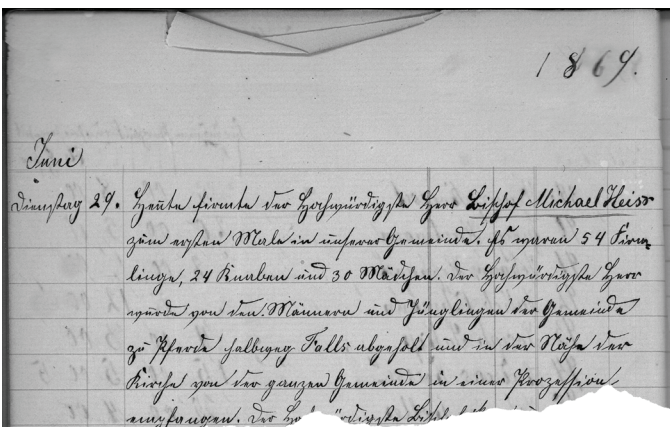 1869.
Juni
Dienstag 29. Heute firmte der Hochwürdigste Herr Bischof Michael Heiss
zum ersten Male in unserer Gemeinde. Es waren 54 Firm-
linge, 24 Knaben und 30 Mädchen. Der Hochwürdigste Herr
wurde von den Männern und Jünglingen der Gemeinde
zu Pferde halbweg Falls abgeholt und in der Nähe der
Kirche von der ganzen Gemeinde in einer Prozession
empfangen. Der Hochwürdigste